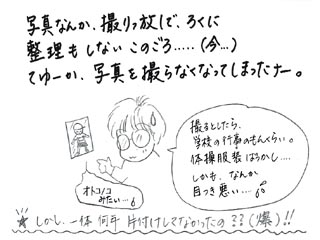 写真なんか、撮りっ放しで、ろくに
整理もしないこのごろ.....(今...)
てゆーか、写真を撮らなくなってしまったナー。
撮るとしたら、
学校の行事のもんくらい。
体操服装ばらかし....
しかも、なんか
目つき悪い...
オトコノコ
みたい...
★しかし、一体 何年 片付けしてなかったの??(爆)!!